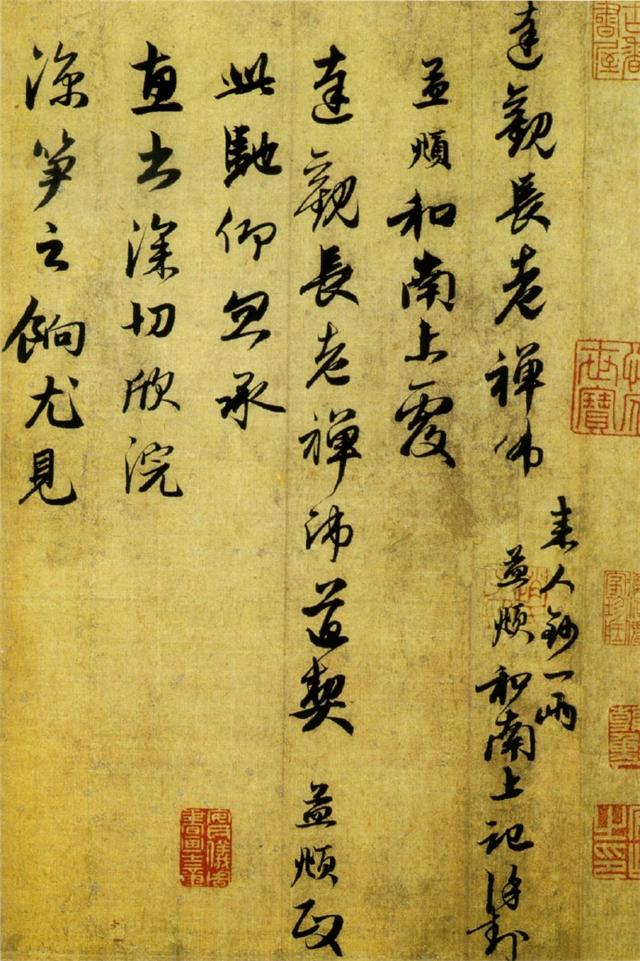 達觀長老禪師
来人鈔一兩
孟頫和南上記謹封
孟頫和南上覆
達觀長老禪師道契 孟頫政
此馳仰忽承
惠書深切欣浣
涼筍之餉尤見